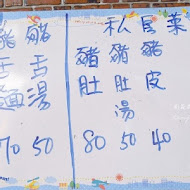 私房菜
豬肚 80
豬肚湯 50
豬皮 40
豬舌湯 50
豬舌麵 70